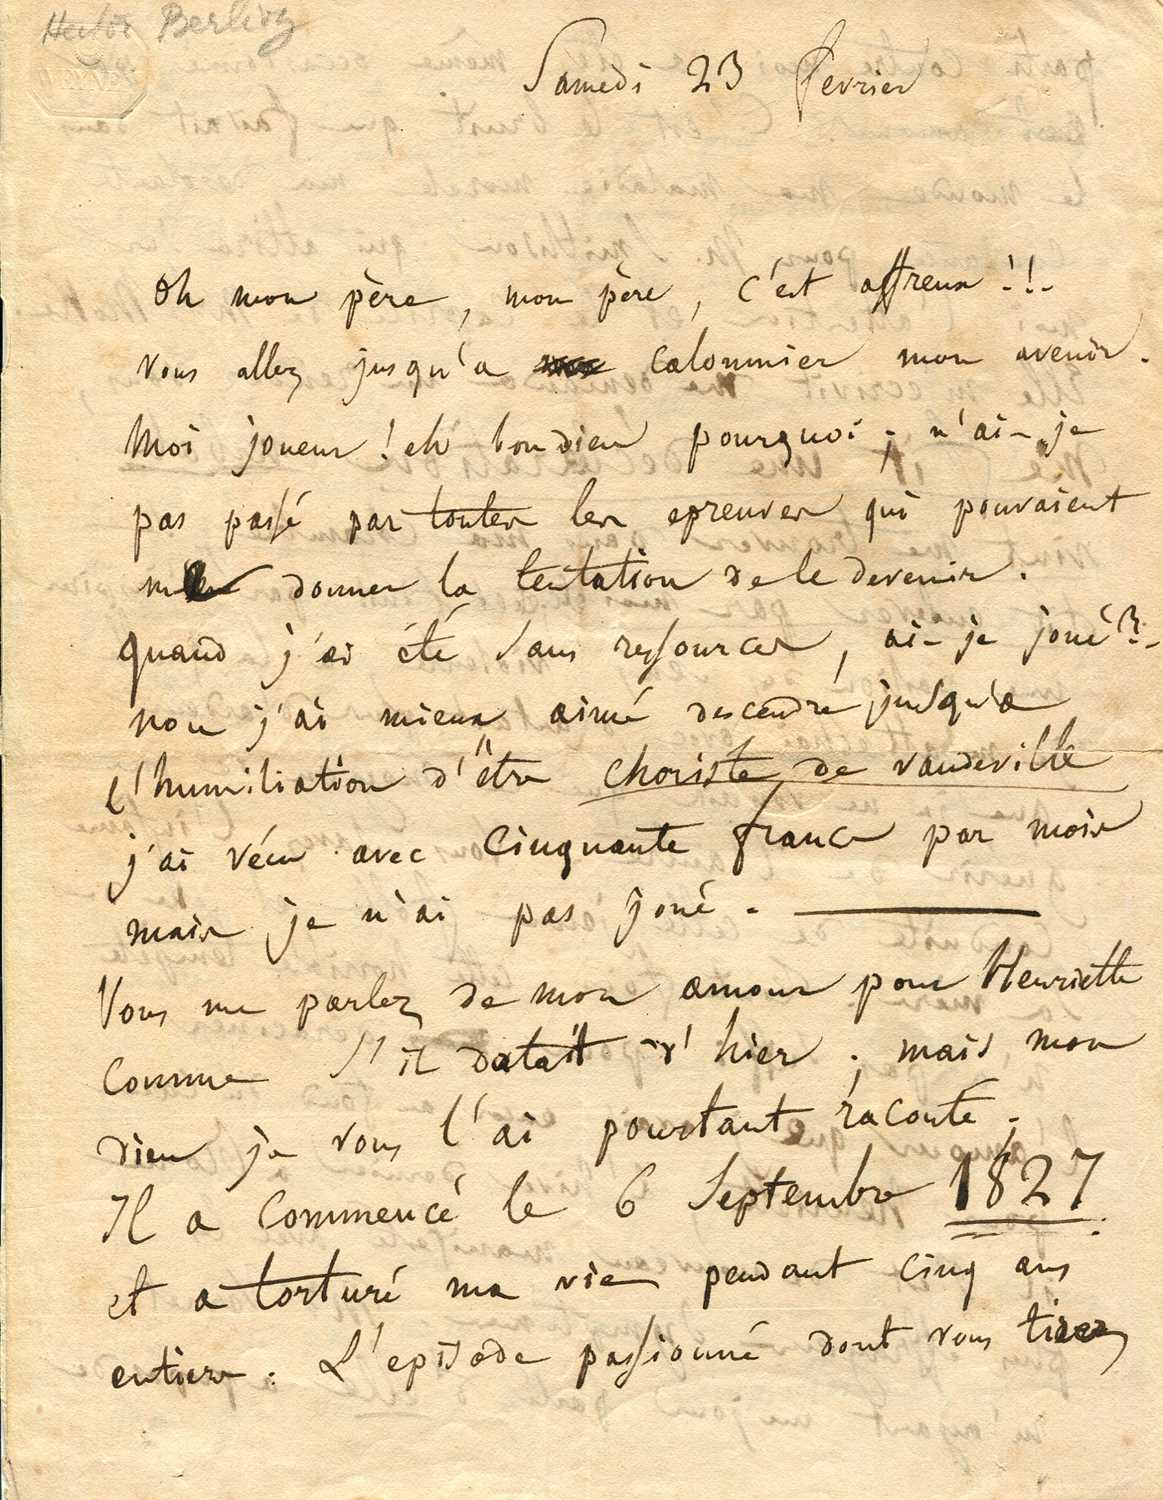 Hector Berlioz
Samedi 23 fevrier
Oh mon père, mon père, c'est affreux !!.
vous allez jusqu'a calomnier mon avenir.
Moi joueur ! eh bon dieu pourquoi ; n'ai-je
pas passé par toutes les epreuves qui pouvaient
me donner la tentation de le devenir.
quand j'ai été sans ressources, ai-je joué ?..
non j'ai mieux aimé descendre jusqu'a
l'humiliation d'être choriste de vaudeville
j'ai vécu avec cinquante francs par mois
mais je n'ai pas joué. —
Vous me parlez de mon amour pour Henriette
comme s'il datait d'hier ; mais mon
dieu je vous l'ai pourtant raconté.
Il a commencé le 6 Septembre 1827.
et a torturé ma vie pendant cinq ans
entiers. L'episode passionné dont vous tirez